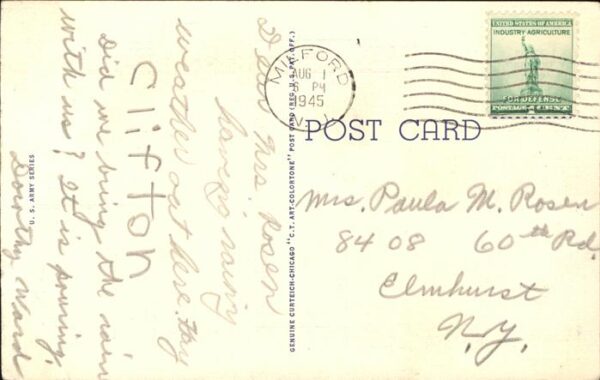 UNITED STATES OF AMERICA
INDUSTRY AGRICULTURE
FOR DEFENSE
POSTAGE 1 CENT
MILFORD
AUG 1
6 PM
1945
N.Y.
POST CARD
Mrs. Paula M. Rosen
8408 60th Rd.
Elmhurst
N.Y.
Dear Mrs Rosen
having rainy
weather out here. Hay
Clifton
Did we bring the rain
with us? It is pouring.
Dorothy Ward
U. S. ARMY SERIES
GENUINE CURTEICH-CHICAGO "C.T. ART-COLORTONE" POST CARD (REG. U.S. PAT. OFF.)